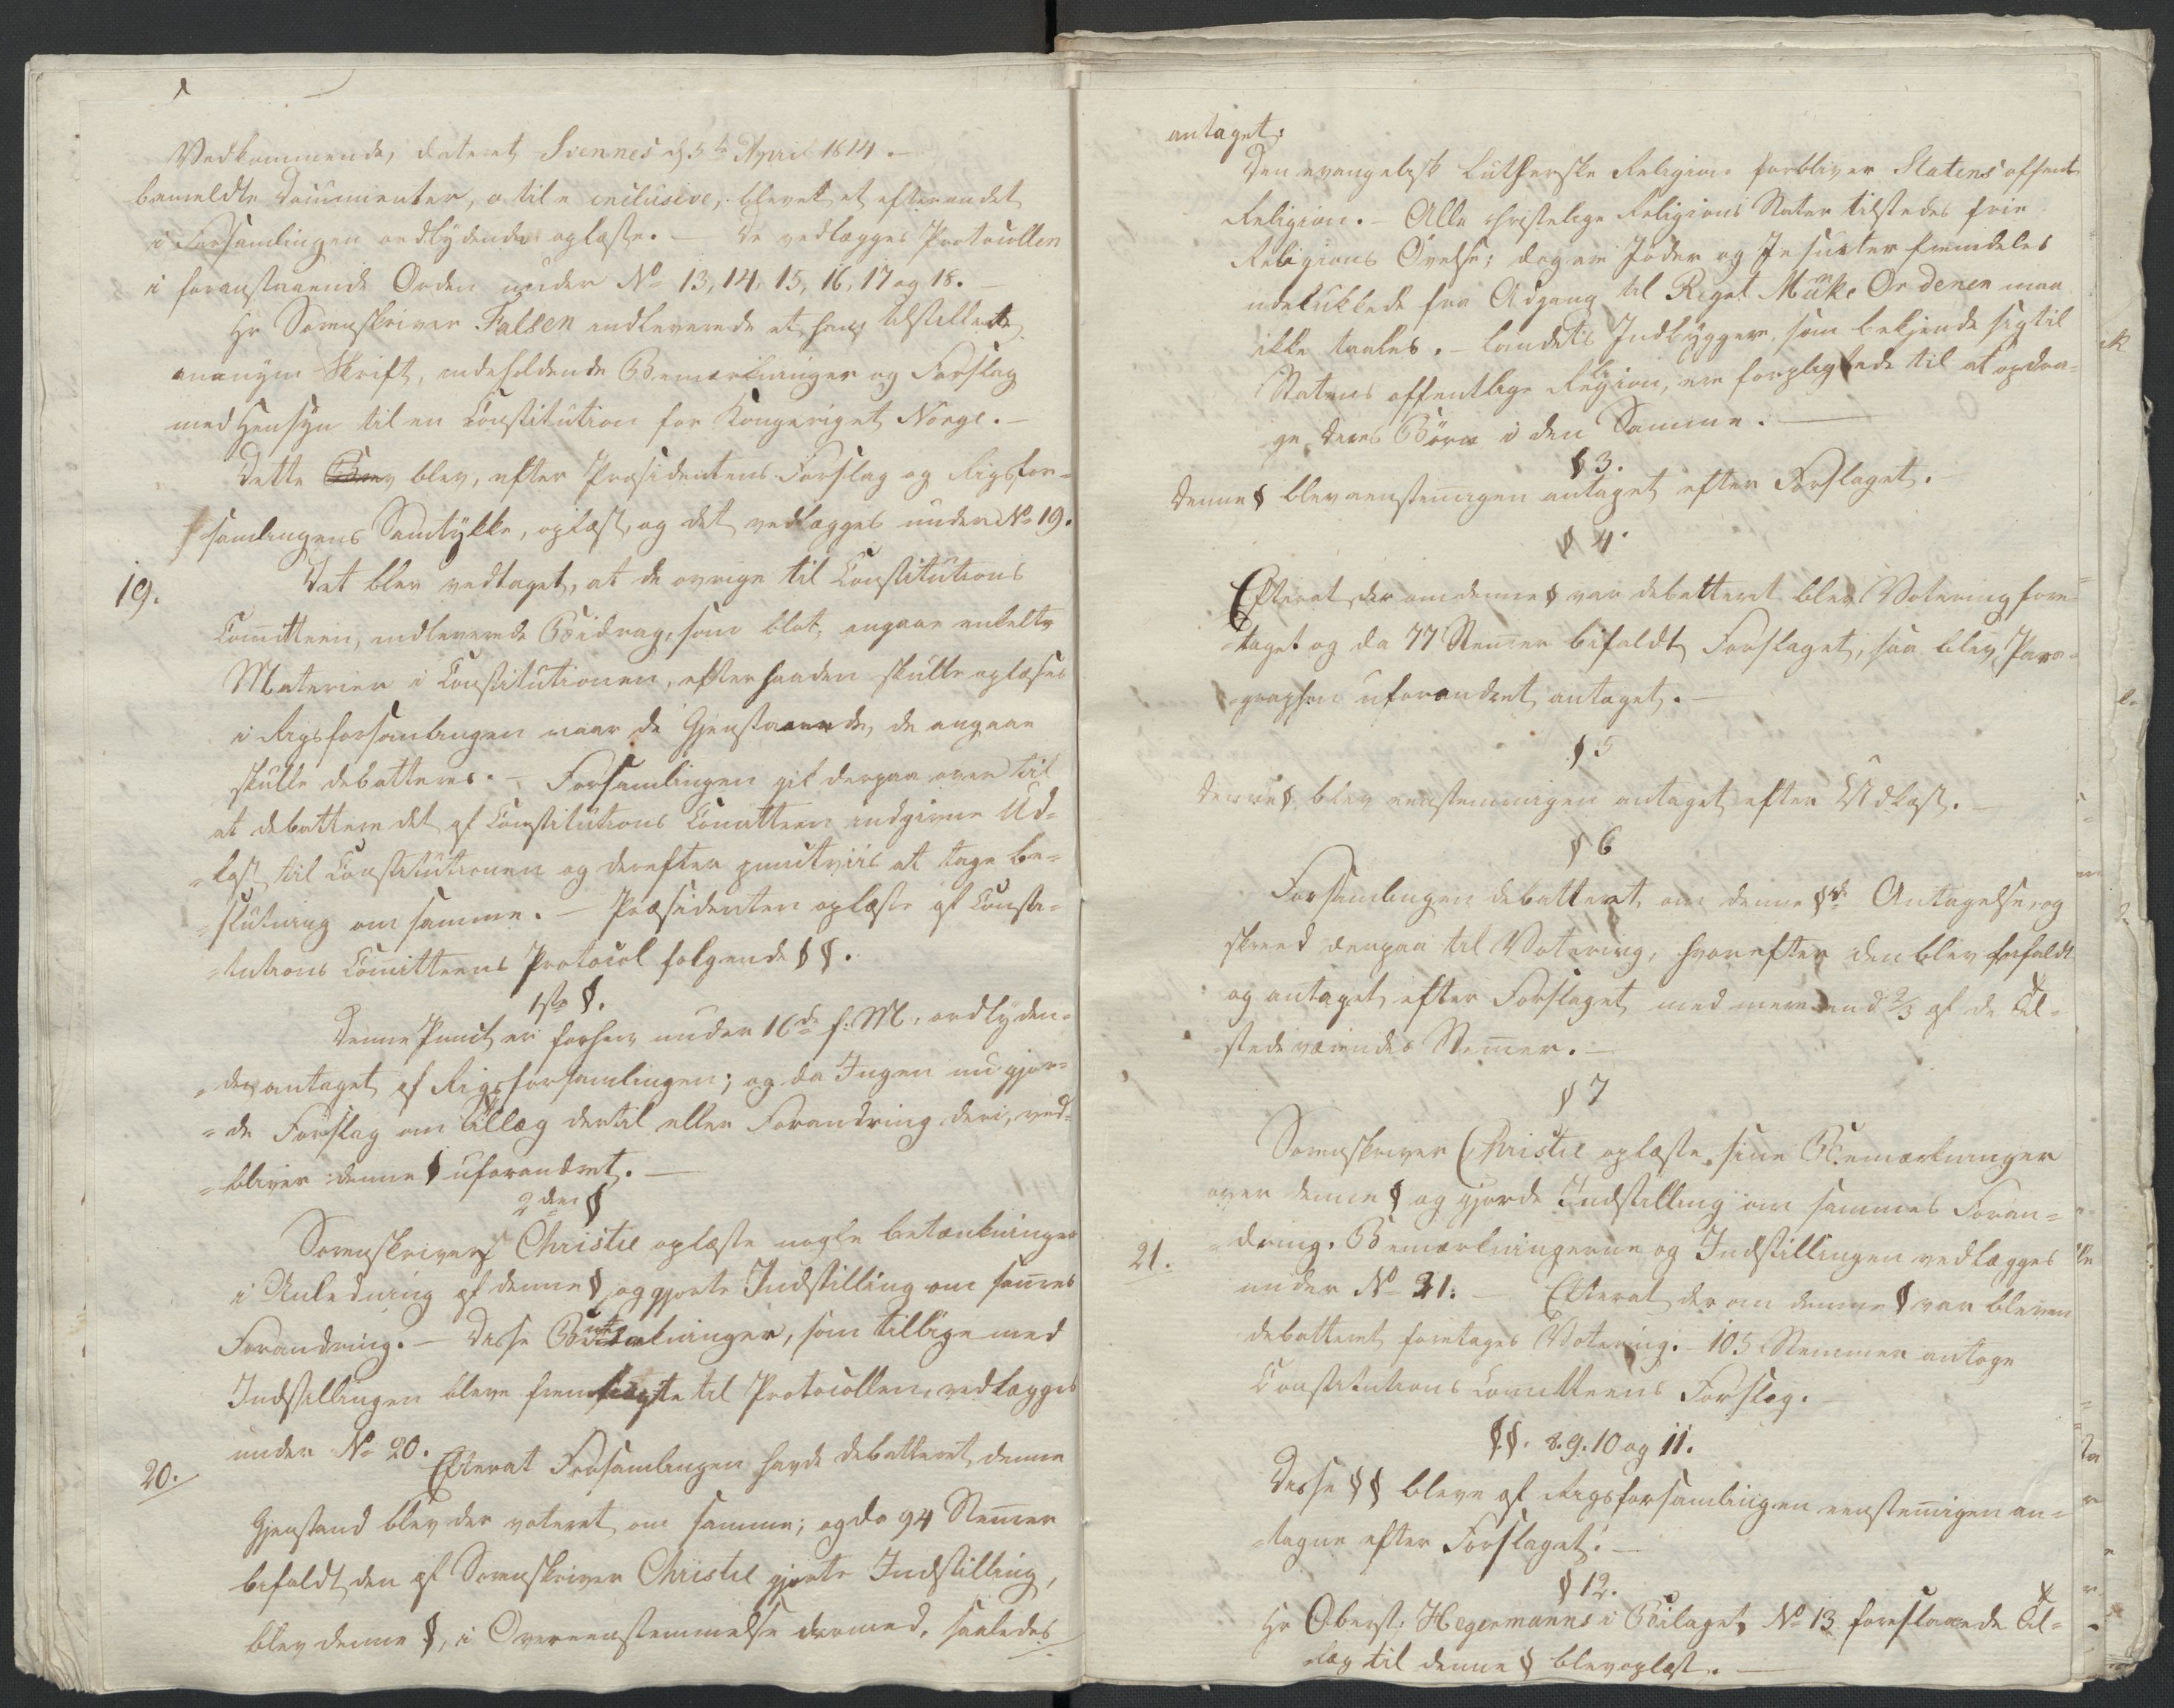 Vedkommende, dateret Svennes d. 5te April 1814.—
bemeldte Documenter, a til e inclusive, blevet et efter andet
i Forsamlingen ordlydende oplæste. — De vedlægges Protocollen
i foranstaaende Orden under No 13, 14, 15, 16, 17 og 18.—
Hr Sorenskriver Falsen indleverede et ham tilstillet
anonym Skrift, indeholdende Bemærkninger og Forslag
med Hensyn til en Constitution for Kongeriget Norge.—
Dette blev, efter Præsidentens Forslag og Rigsfor-
samlingens Samtykke, oplæst, og det vedlægges under No 19.
19.
Det blev vedtaget, at de øvrige til Constitutions
Comitteen, indleverede Bidrag, som blot, angaae enkelte
Materier i Constitutionen, efterhaanden skulle oplæses
i Rigsforsamlingen naar de Gjenstaende, de angaae
skulle debatteres.— Forsamlingen gik derpaa over til
at debattere det af Constitutions Comitteen indgivne Ud-
=kast til Constitutionen og derefter punctviis at tage be=
=slutning om samme.— Præsidenten oplæste af Consti=
=tutions Comitteens Protocol følgende §§.
1ste §.
Denne Punct er forhen under 16de f: M. ordlyden-
=de, antaget af Rigsforsamlingen; og da Ingen nu gjor=
=de Forslag om Tillæg dertil eller Forandring deri, ved=
=bliver denne § uforandret.—
2den §
Sorenskriver Christie oplæste nogle betænkninger
i Anledning af denne §, og gjorte Indstilling om sammes
Forandring.— Disse Betænkninger, som tillige med
Indstillingen bleve fremlagte til Protocollen, vedlægges
under No 20. Efterat Forsamlingen havde debatteret denne
20.
Gjenstand blev der voteret om samme; og da 94 Stemmer
bifaldt den af Sorenskriver Christie gjorte Indstilling,
blev denne §, i Overeenstemmelse dermed, saaledes
antaget:
Den evangelisk Lutherske Religion forbliver Statens offentl
Religion.— Alle christelige Religions Secter tilstedes frie
Religions Øvelse; dog ere Jøder og Jesuiter fremdeles
udelukkede fra Adgang til Riget. Munke Ordener maa
ikke taales.— Landets Indbyggere, som bekjende sig til
Statens offentlige Religion, ere forpligtede til at opdra=
ge deres Børn i den Samme.—
§ 3.
Denne § blev eenstemmigen antaget efter Forslaget.—
§ 4.
Efterat der om denne § var debatteret blev Votering fore=
=taget og da 77 Stemmer bifaldt Forslaget, saa blev Para=
=graphen uforandret antaget.—
§ 5
Denne § blev eenstemmigen antaget efter Udkast.—
§ 6
Forsamlingen debatteret om denne §des Antagelse, og
skreed derpaa til Votering, hvorefter den blev bifaldt
og antaget efter Forslaget med mere end 2/3 af de Til=
stedeværendes Stemmer.—
§ 7
Sorenskriver Christie oplæste sine Bemærkninger
over denne § og gjorde Indstilling om sammes Foran=
=dring. Bemærkningerne og Indstillingen vedlægges
21.
under No 21.— Efterat der om denne § var bleven
debatteret foretages Votering.— 103 Stemmer antoge
Constitutions Comitteens Forslag.—
§§. 8. 9. 10 og 11.
Disse §§ bleve af Rigsforsamlingen eenstemmigen an=
=tagne efter Forslaget.—
§ 12.
Hr Oberst, Hegermanns i Bilaget No 13 foreslaaede Til=
=læg til denne § blev oplæst.—